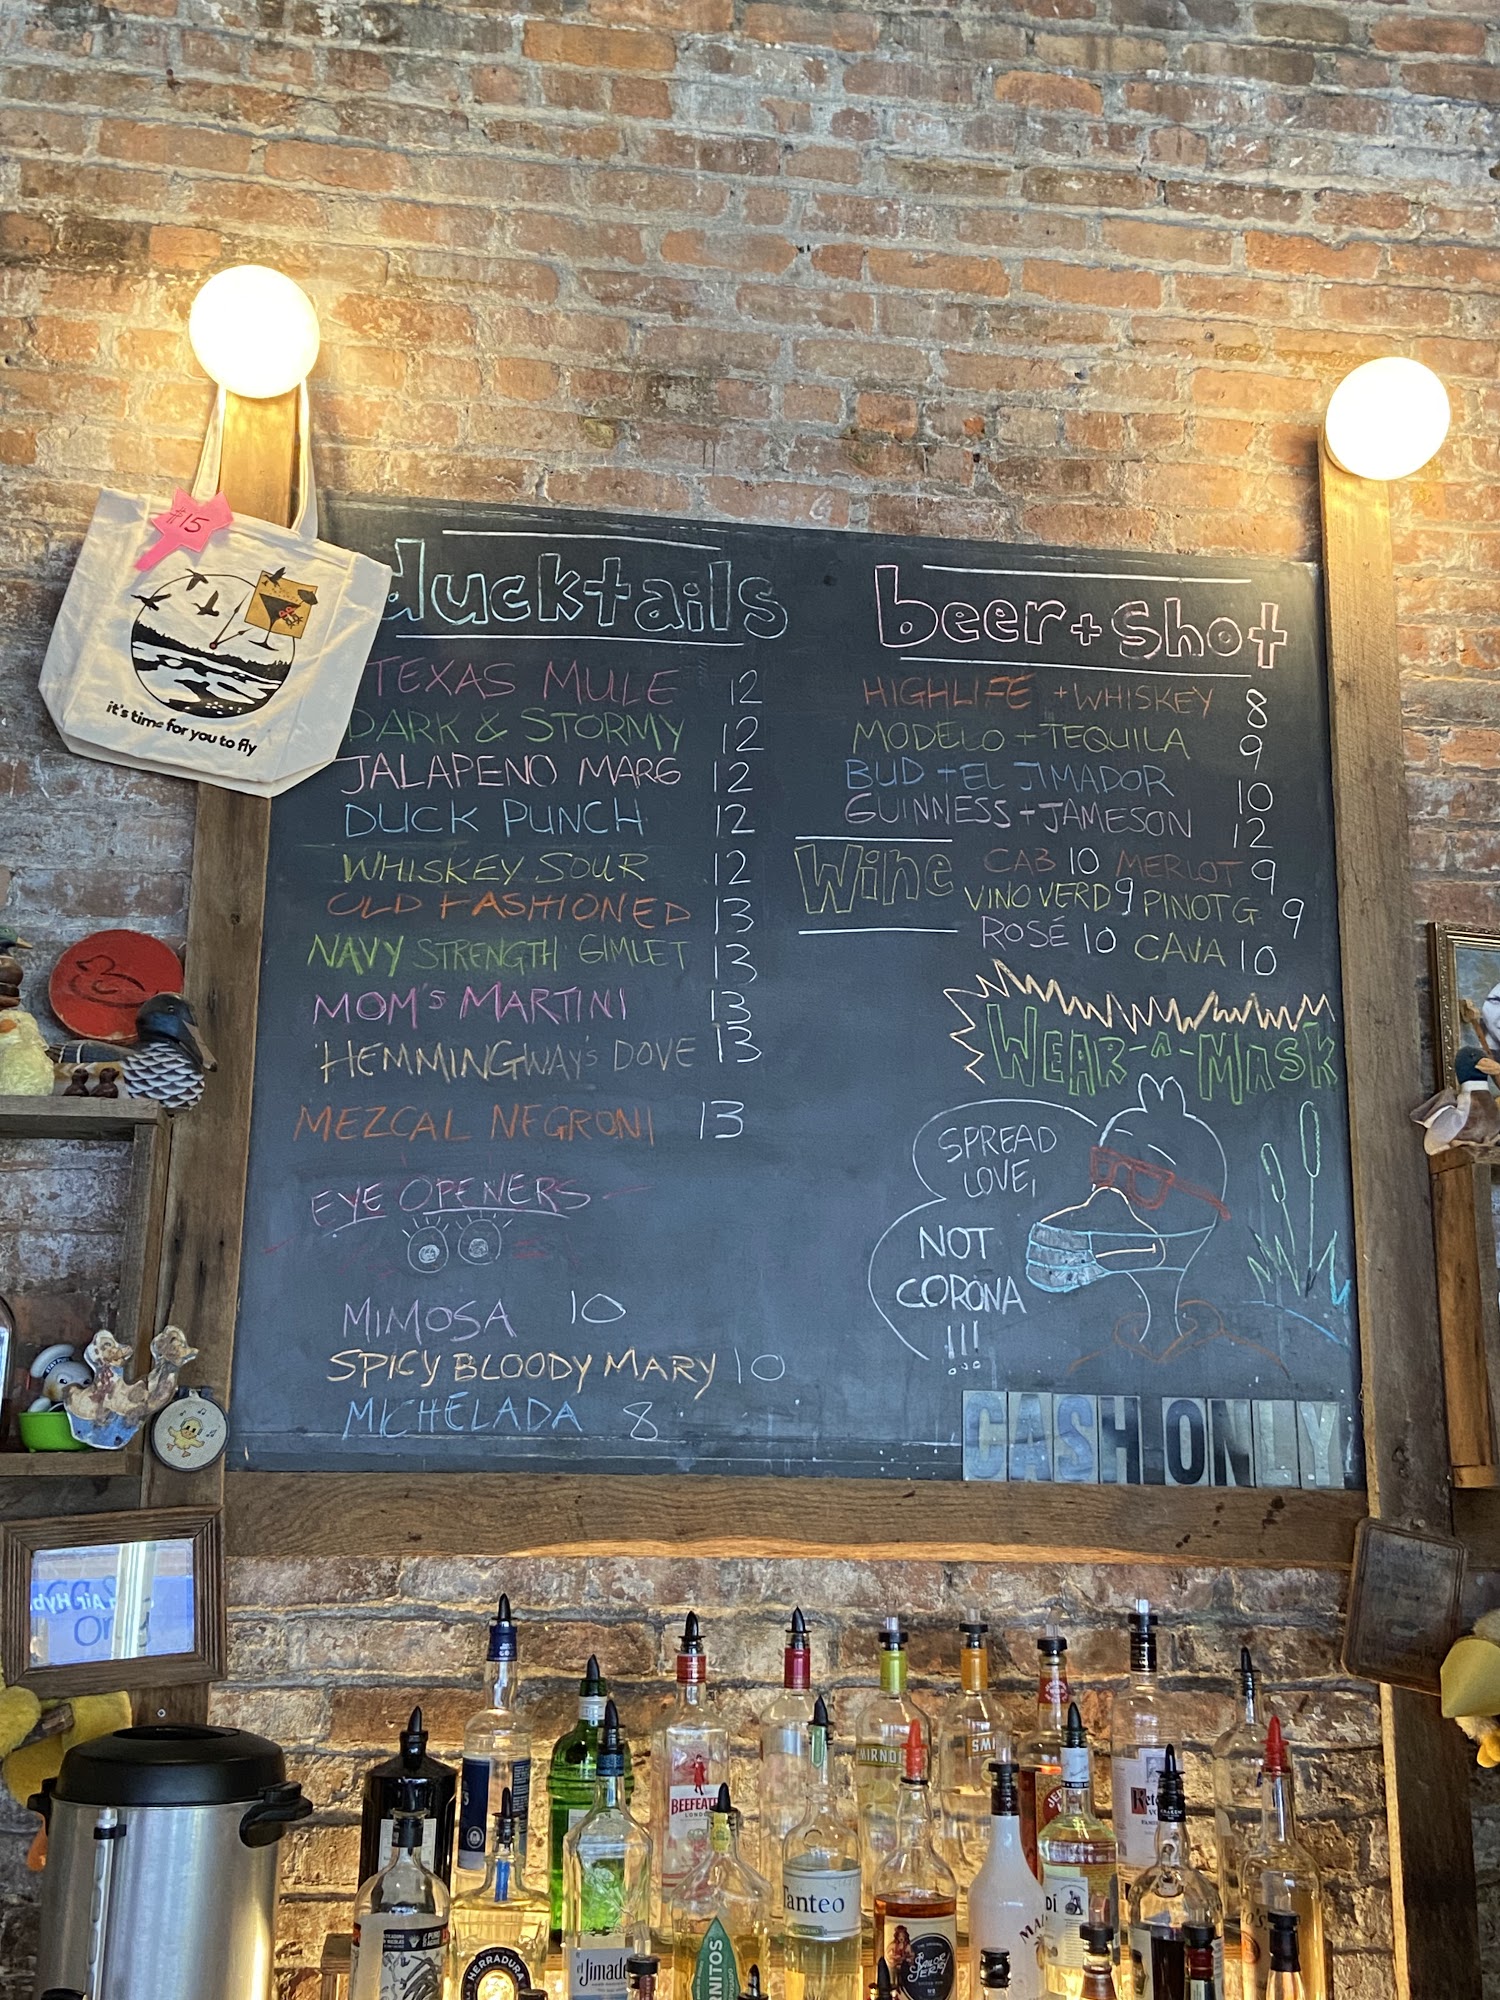 $15
it's time for you to fly
ducktails
TEXAS MULE 12
DARK & STORMY 12
JALAPENO MARG 12
DUCK PUNCH 12
WHISKEY SOUR 12
OLD FASHIONED 13
NAVY STRENGTH GIMLET 13
MOM'S MARTINI 13
HEMMINGWAY'S DOVE 13
MEZCAL NEGRONI 13
EYE OPENERS
MIMOSA 10
SPICY BLOODY MARY 10
MICHELADA 8
beer + shot
HIGHLIFE + WHISKEY 8
MODELO + TEQUILA 9
BUD + EL JIMADOR 10
GUINNESS + JAMESON 12
Wine
CAB 10 MERLOT 9
VINO VERD 9 PINOT G 9
ROSÉ 10 CAVA 10
WEAR-A-MASK
SPREAD
LOVE,
NOT
CORONA
!!!
CASH ONLY
BEEFEATER
LONDON
SMIRNO
SMI
Kete
Tanteo
HERRADURA
el Jimado
RNITOS
SAILOR
JERRY